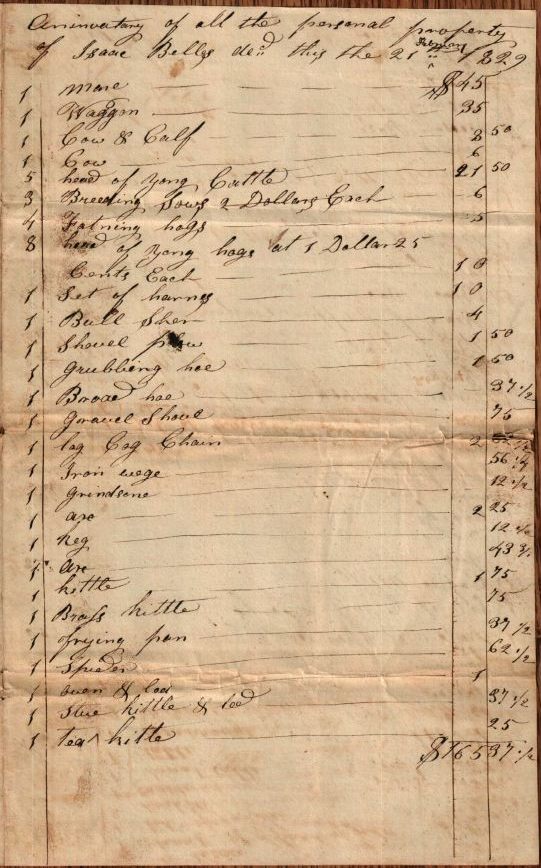 An invatary of all the personal property
of Isaac Belles decd this the 21st February 1829
1 mare $45
1 Waggon 35
1 Cow & Calf 8 50
1 Cow 6
5 head of yong Cattle 21 50
3 Breeding Sows 2 Dollars Each 6
4 Fatning hogs 5
8 head of yong hogs at 1 Dollar 25
Cents Each 10
1 Set of harnes 10
1 Bull 4
1 Shovel plow 1 50
1 Grubbing hoe 1 50
1 Broad hoe 37 1/2
1 Gravel Shove 75
1 log Chain 2
1 Iron wege 56 1/4
1 Grindsone 12 1/2
1 axe 2 25
1 Keg 12 1/2
1 axe 43 3/4
1 kittle 1 75
1 Brass kittle 75
1 frying pan 37 1/2
1 Spider 62 1/2
1 oven & led 1
1 Stue kittle & led 37 1/2
1 tea kitle 25
$165 37 1/2